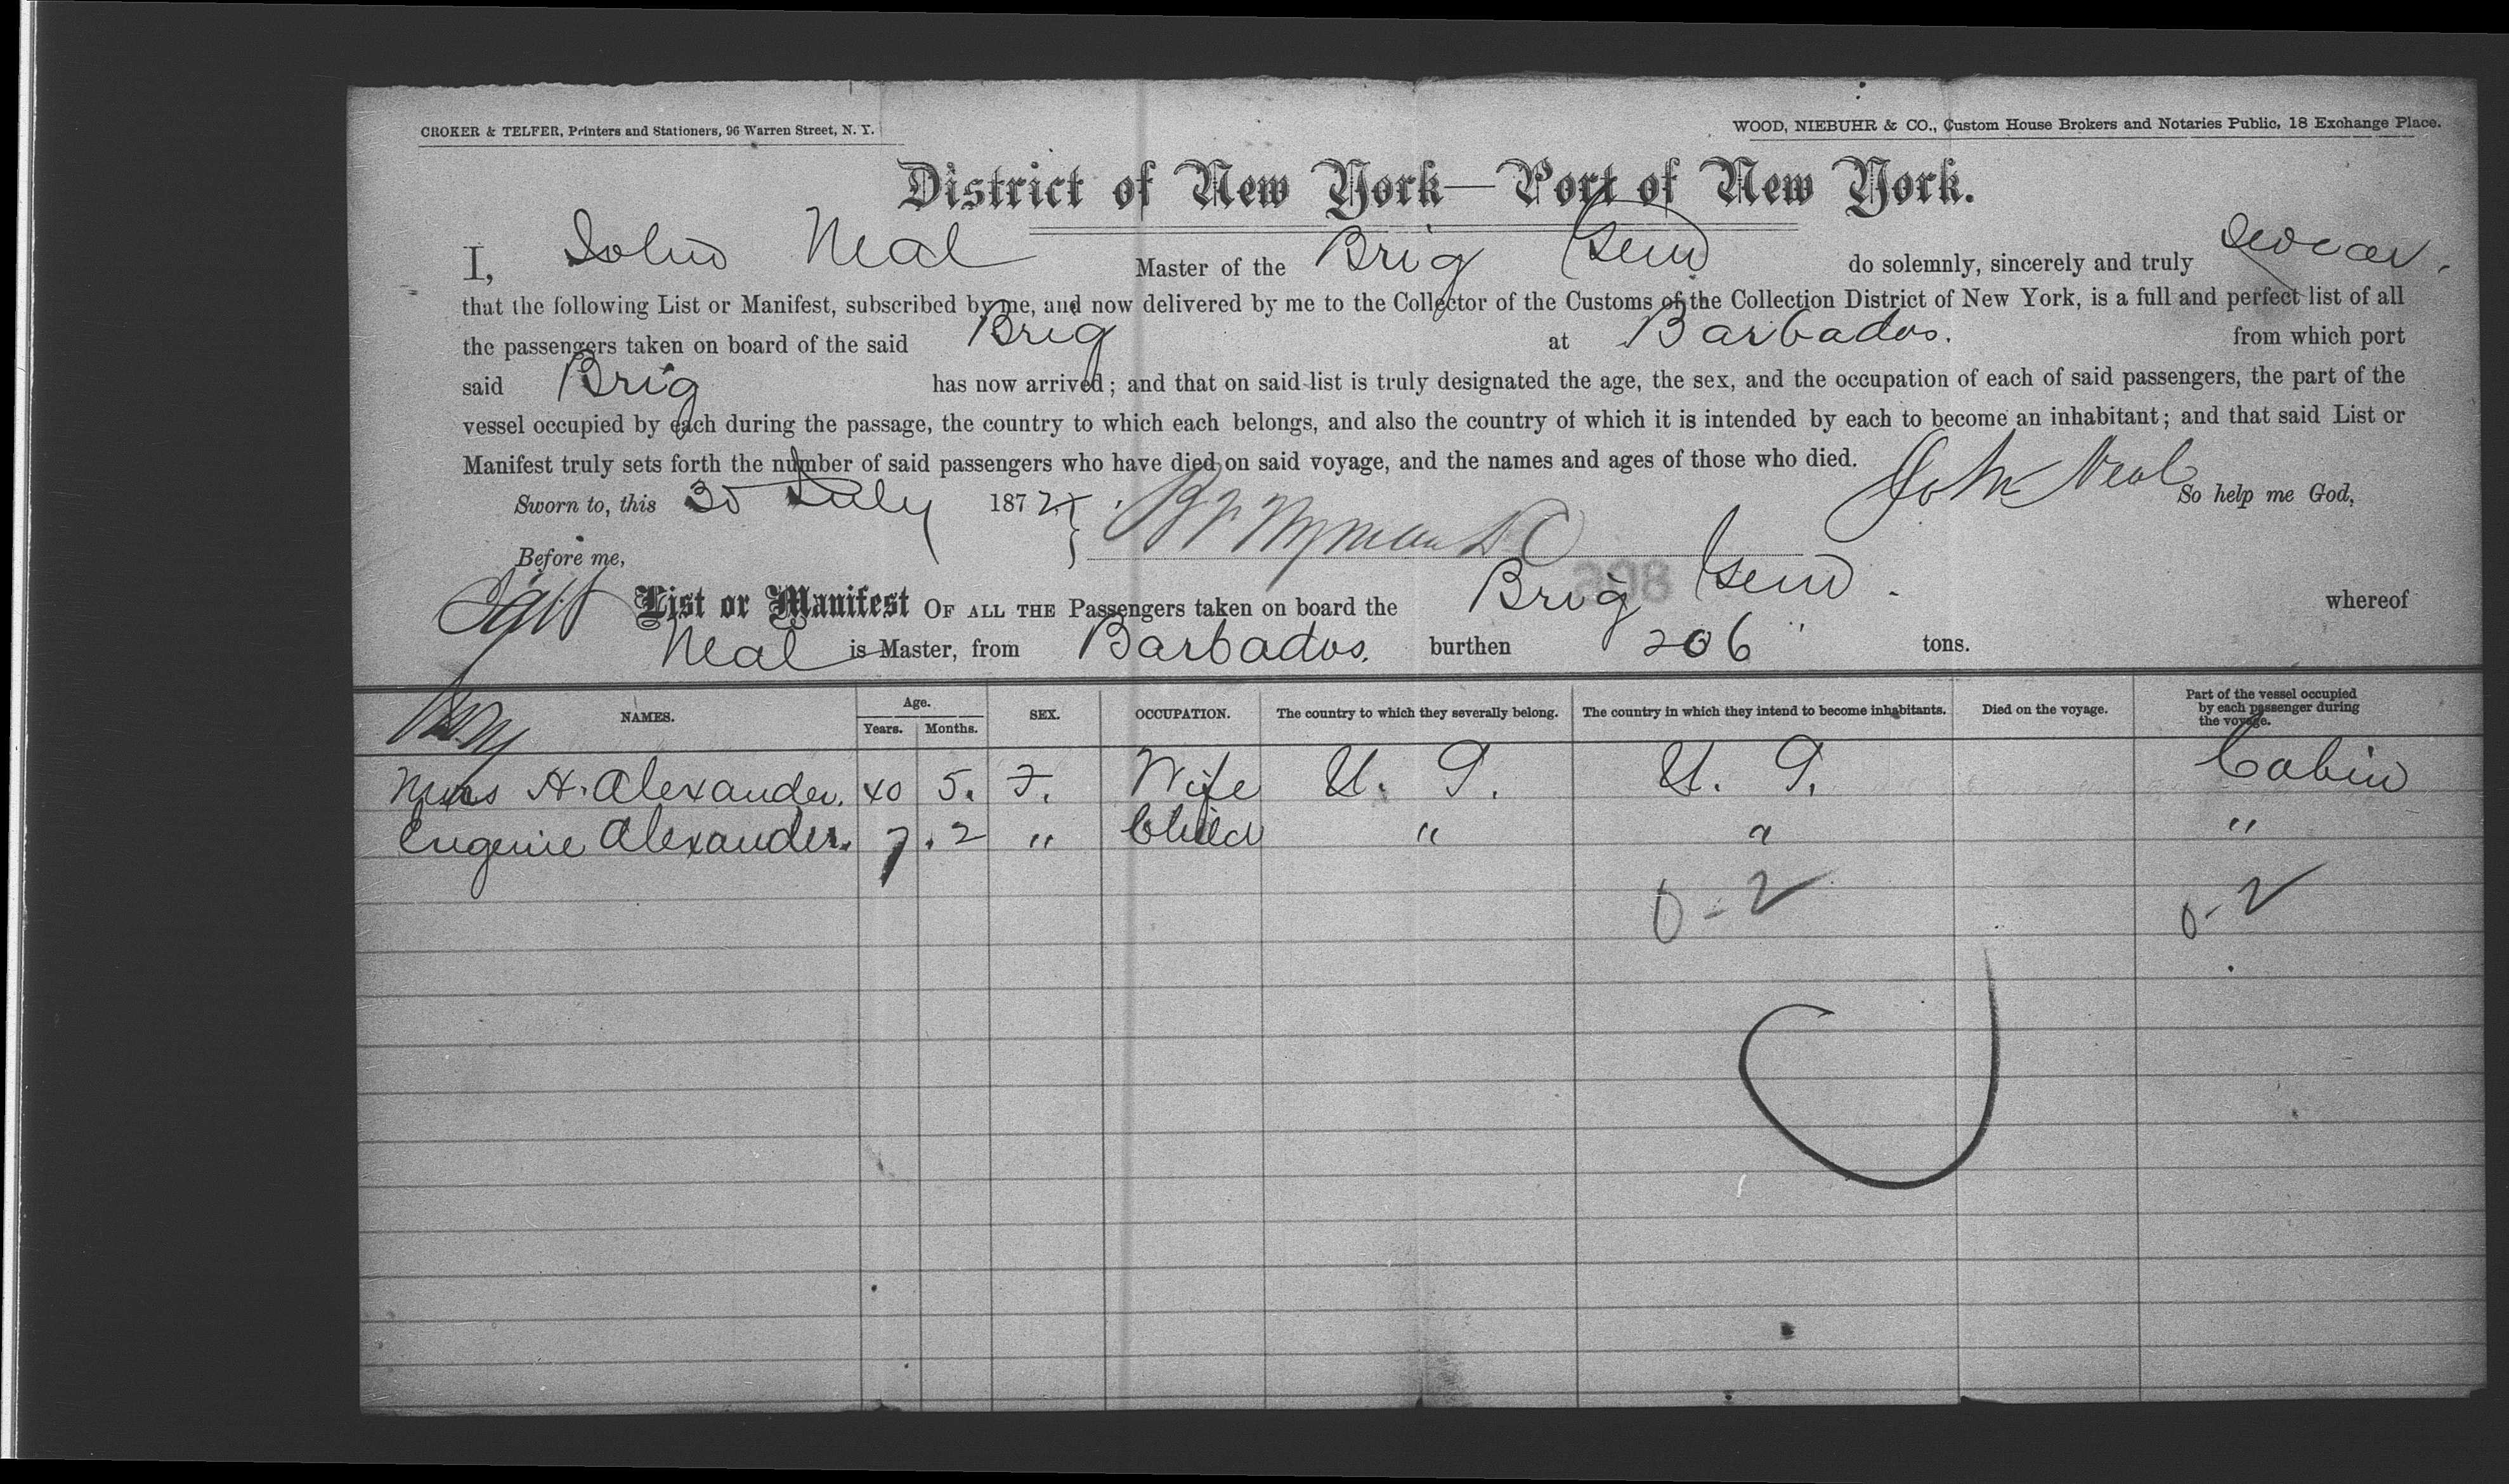 CROKER & TELFER, Printers and Stationers, 96 Warren Street, N. Y.
WOOD, NIEBUHR & CO., Custom House Brokers and Notaries Public, 18 Exchange Place.
District of New York—Port of New York.
I, John Neal Master of the Brig Gem do solemnly, sincerely and truly swear.
that the following List or Manifest, subscribed by me, and now delivered by me to the Collector of the Customs of the Collection District of New York, is a full and perfect list of all
the passengers taken on board of the said Brig at Barbados. from which port
said Brig has now arrived; and that on said list is truly designated the age, the sex, and the occupation of each of said passengers, the part of the
vessel occupied by each during the passage, the country to which each belongs, and also the country of which it is intended by each to become an inhabitant; and that said List or
Manifest truly sets forth the number of said passengers who have died on said voyage, and the names and ages of those who died. John Neal
Sworn to, this 30 July 1872 So help me God,
Before me,
List or Manifest OF ALL THE Passengers taken on board the Brig Gem. whereof
Neal is Master, from Barbados. burthen 206 tons.
NAMES. Age. Years. Months. SEX. OCCUPATION. The country to which they severally belong. The country in which they intend to become inhabitants. Died on the voyage. Part of the vessel occupied by each passenger during the voyage.
Mrs H. Alexander. 40 5. F. Wife U. S. U. S. Cabin
Eugenie Alexander. 7. 2 " Child " " "
0-2 0-2